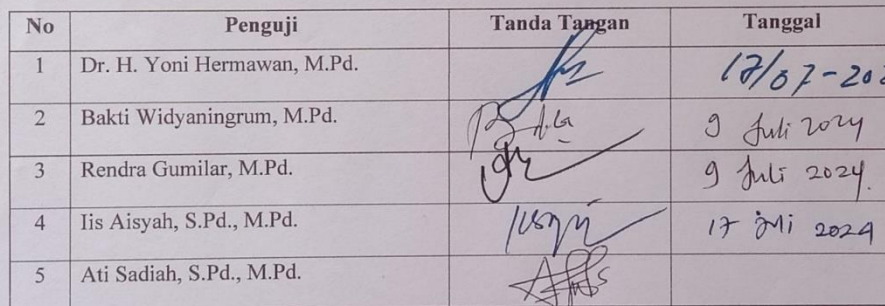 No Penguji Tanda Tangan Tanggal
1 Dr. H. Yoni Hermawan, M.Pd. 17/07-202
2 Bakti Widyaningrum, M.Pd. 9 Juli 2024
3 Rendra Gumilar, M.Pd. 9 Juli 2024.
4 Iis Aisyah, S.Pd., M.Pd. 17 Juli 2024
5 Ati Sadiah, S.Pd., M.Pd.